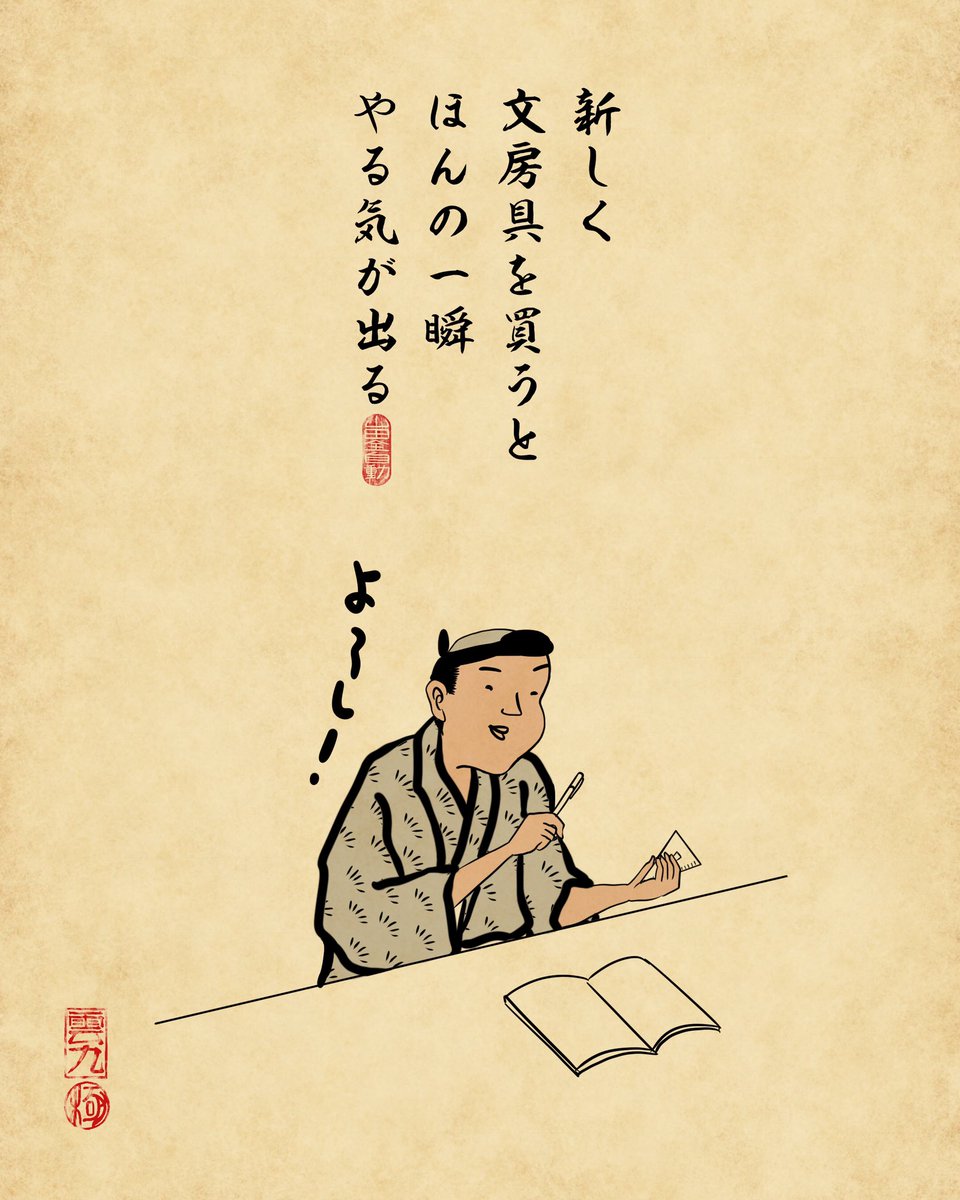 新しく
文房具を買うと
ほんの一瞬
やる気が出る
よ〜し！